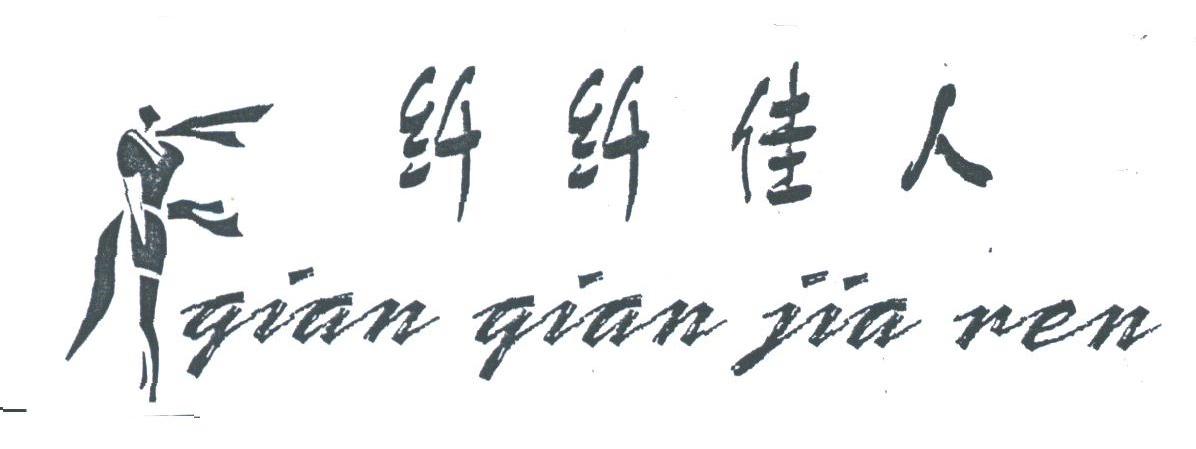 纤纤佳人
qian qian jia ren